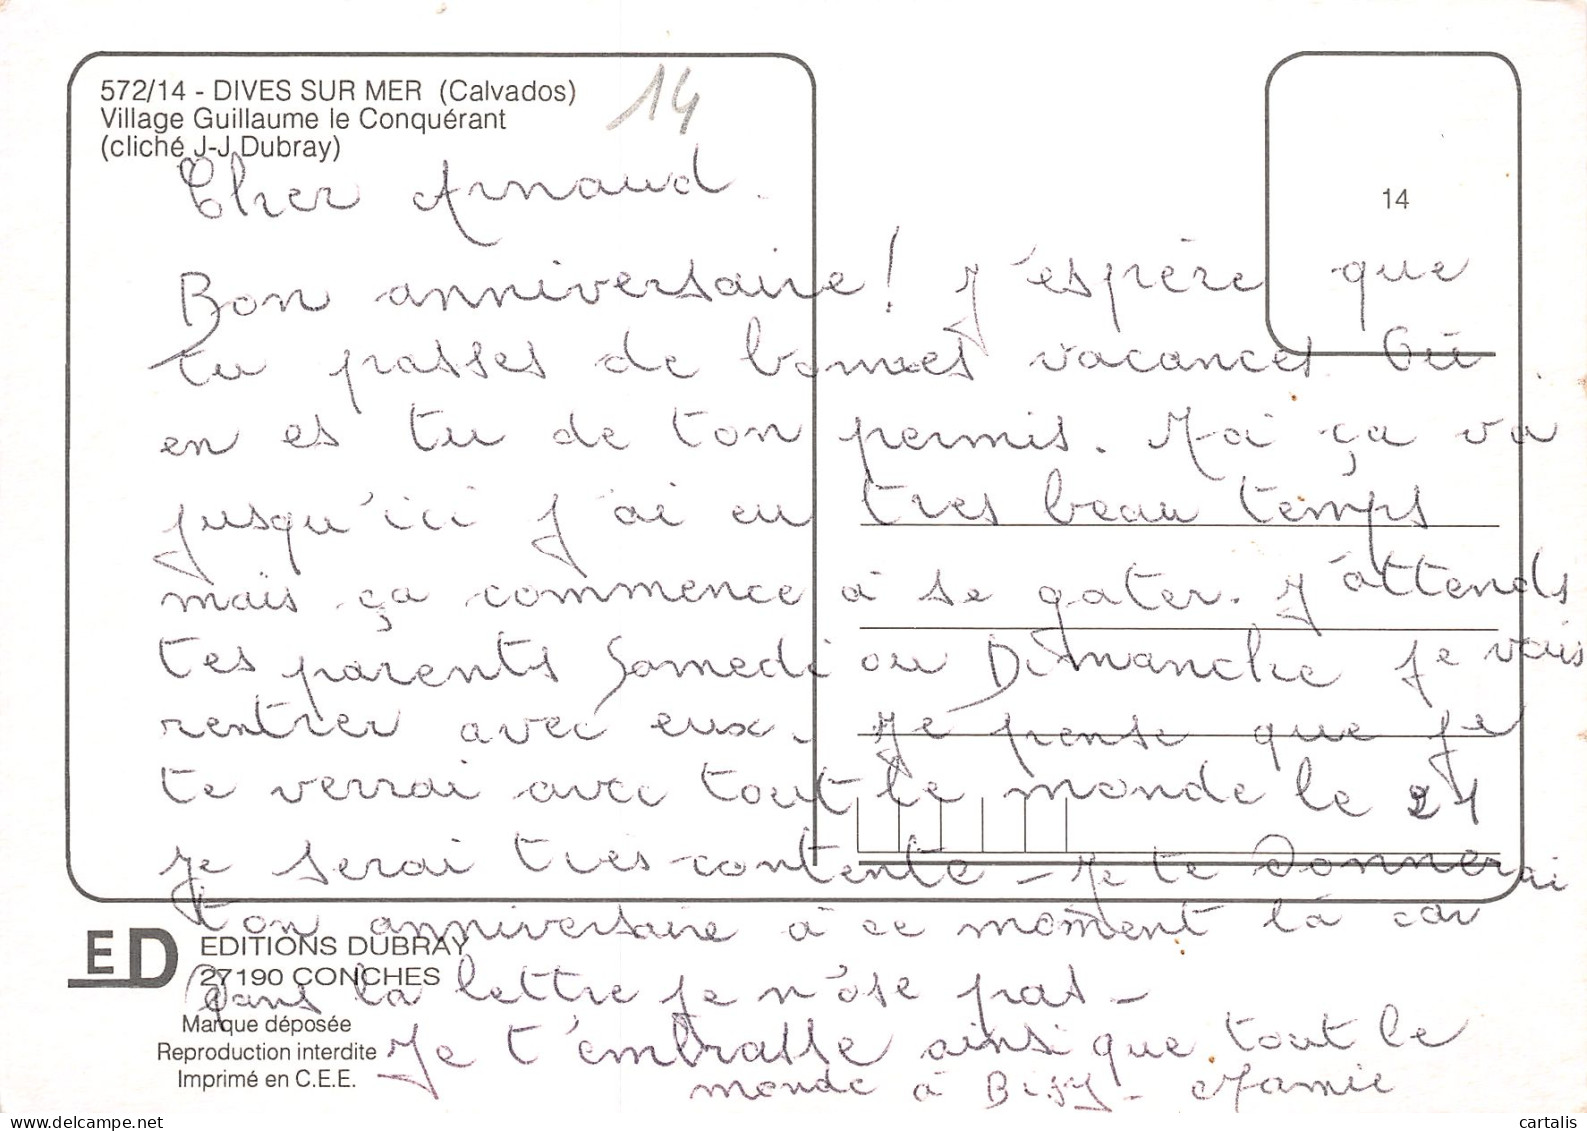 572/14 - DIVES SUR MER (Calvados)
Village Guillaume le Conquérant
(cliché J-J Dubray)
14
14
Cher Arnaud.
Bon anniversaire ! J'espère que
tu passes de bonnes vacances Où
en es tu de ton permis. Moi ça va
jusqu'ici j'ai eu tres beau temps
mais ça commence à se gater. J'attends
tes parents Samedi ou Dimanche je vais
rentrer avec eux. Je pense que je
te verrai avec tout le monde le 21
Je serai tres contente - Je te donnerai
ton anniversaire à ce moment là car
dans la lettre je n'ose pas -
Je t'embrasse ainsi que tout le
monde à Bizy - Mamie
ED
EDITIONS DUBRAY
27190 CONCHES
Marque déposée
Reproduction interdite
Imprimé en C.E.E.
delcampe.net
cartalis